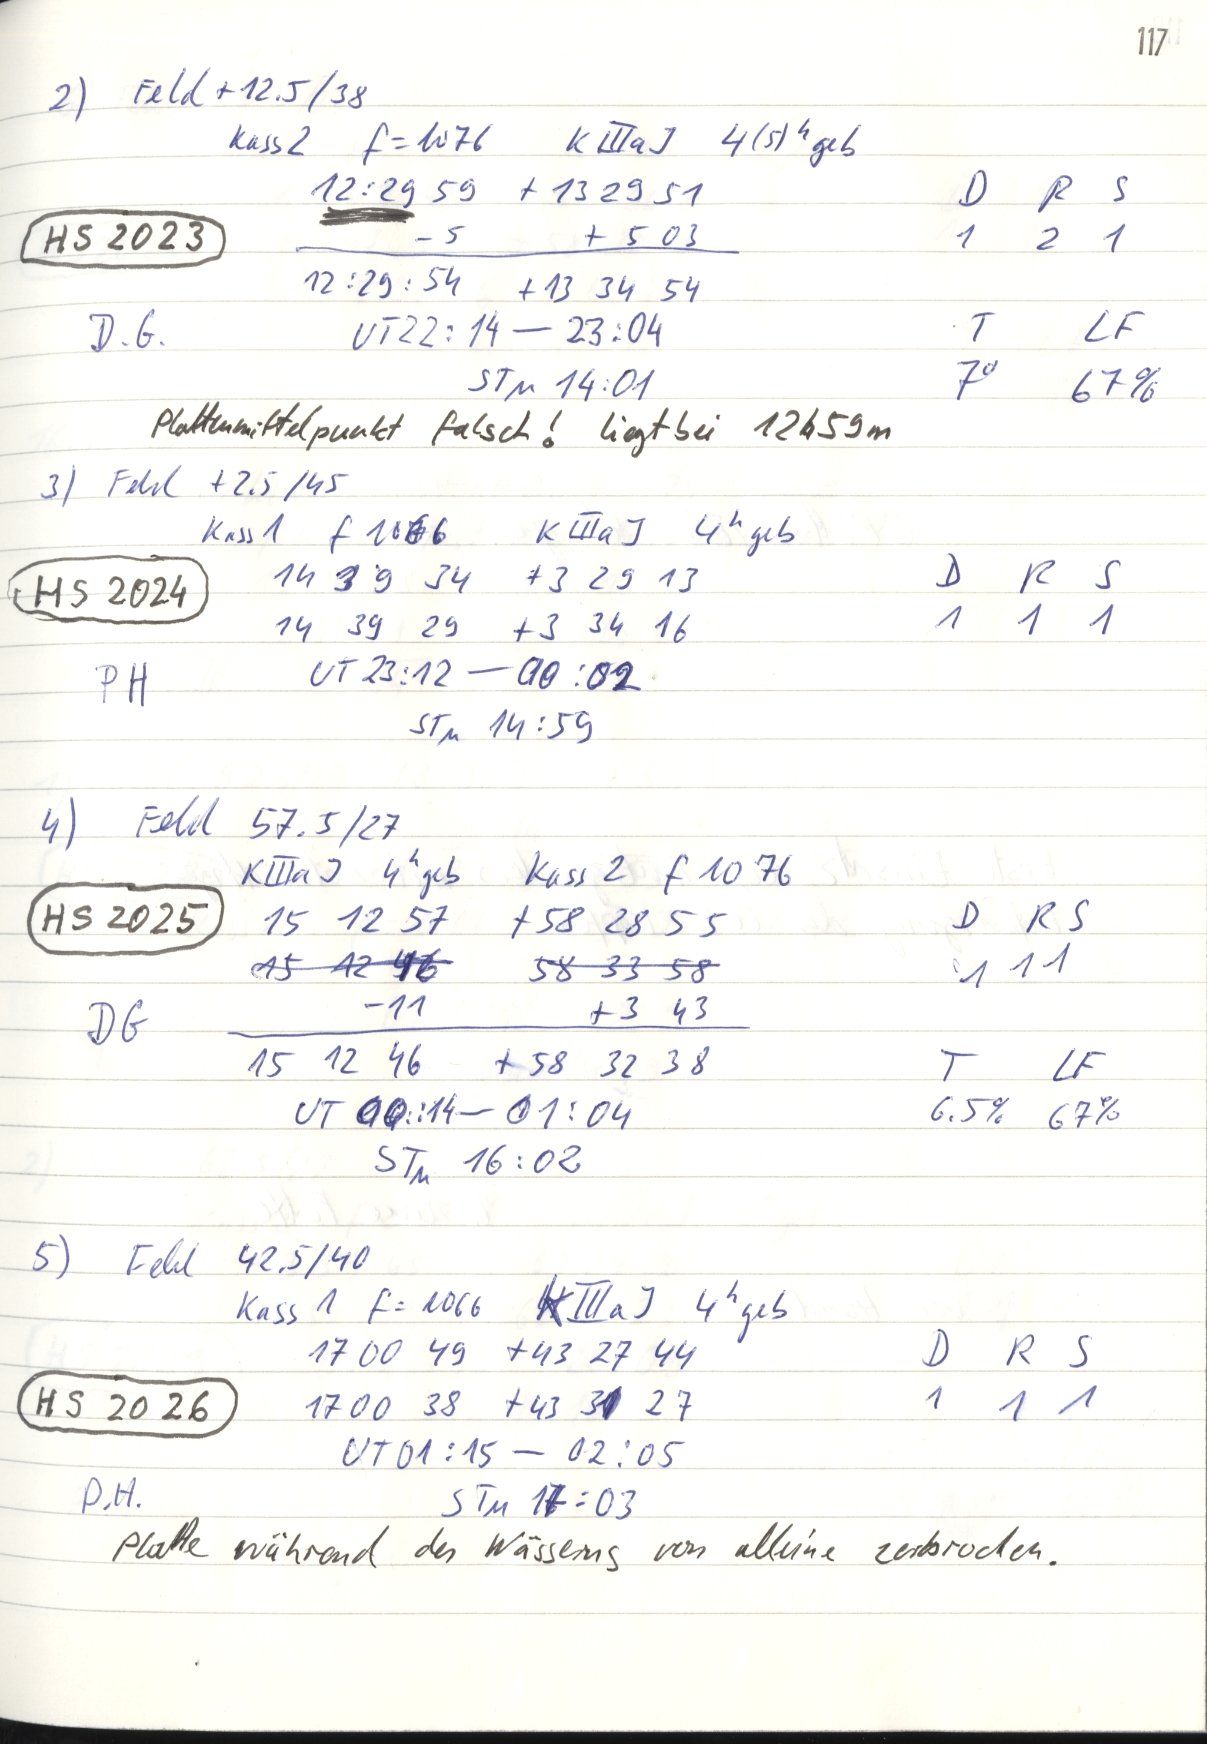 117
2) Feld +12.5/38
Kass 2 f=1076 K IIIaJ 4(5)ʰ geb
12:29 59 +13 29 51 D R S
HS 2023 -5 +5 03 1 2 1
12:29:54 +13 34 54
D.G. UT 22:14 — 23:04 T LF
STM 14:01 7° 67%
Plattenmittelpunkt falsch! liegt bei 12h59m
3) Feld +2.5/45
Kass 1 f 1066 K IIIaJ 4ʰ geb
HS 2024 14 39 34 +3 29 13 D R S
14 39 29 +3 34 16 1 1 1
PH UT 23:12 — 00:02
STM 14:59
4) Feld 57.5/27
K IIIaJ 4ʰ geb Kass 2 f 1076
HS 2025 15 12 57 +58 28 55 D R S
15 12 46 58 33 58 1 1 1
DG -11 +3 43
15 12 46 +58 32 38 T LF
UT 00:14 — 01:04 6.5% 67%
STM 16:02
5) Feld 42.5/40
Kass 1 f=1066 K IIIaJ 4ʰ geb
17 00 49 +43 27 44 D R S
HS 2026 17 00 38 +43 31 27 1 1 1
UT 01:15 — 02:05
P.H. STM 17:03
Platte während der Wässerung von alleine zerbrochen.